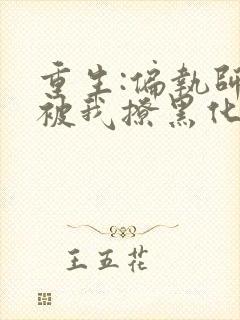 重生:偏執師
被我撩黑化
王五花